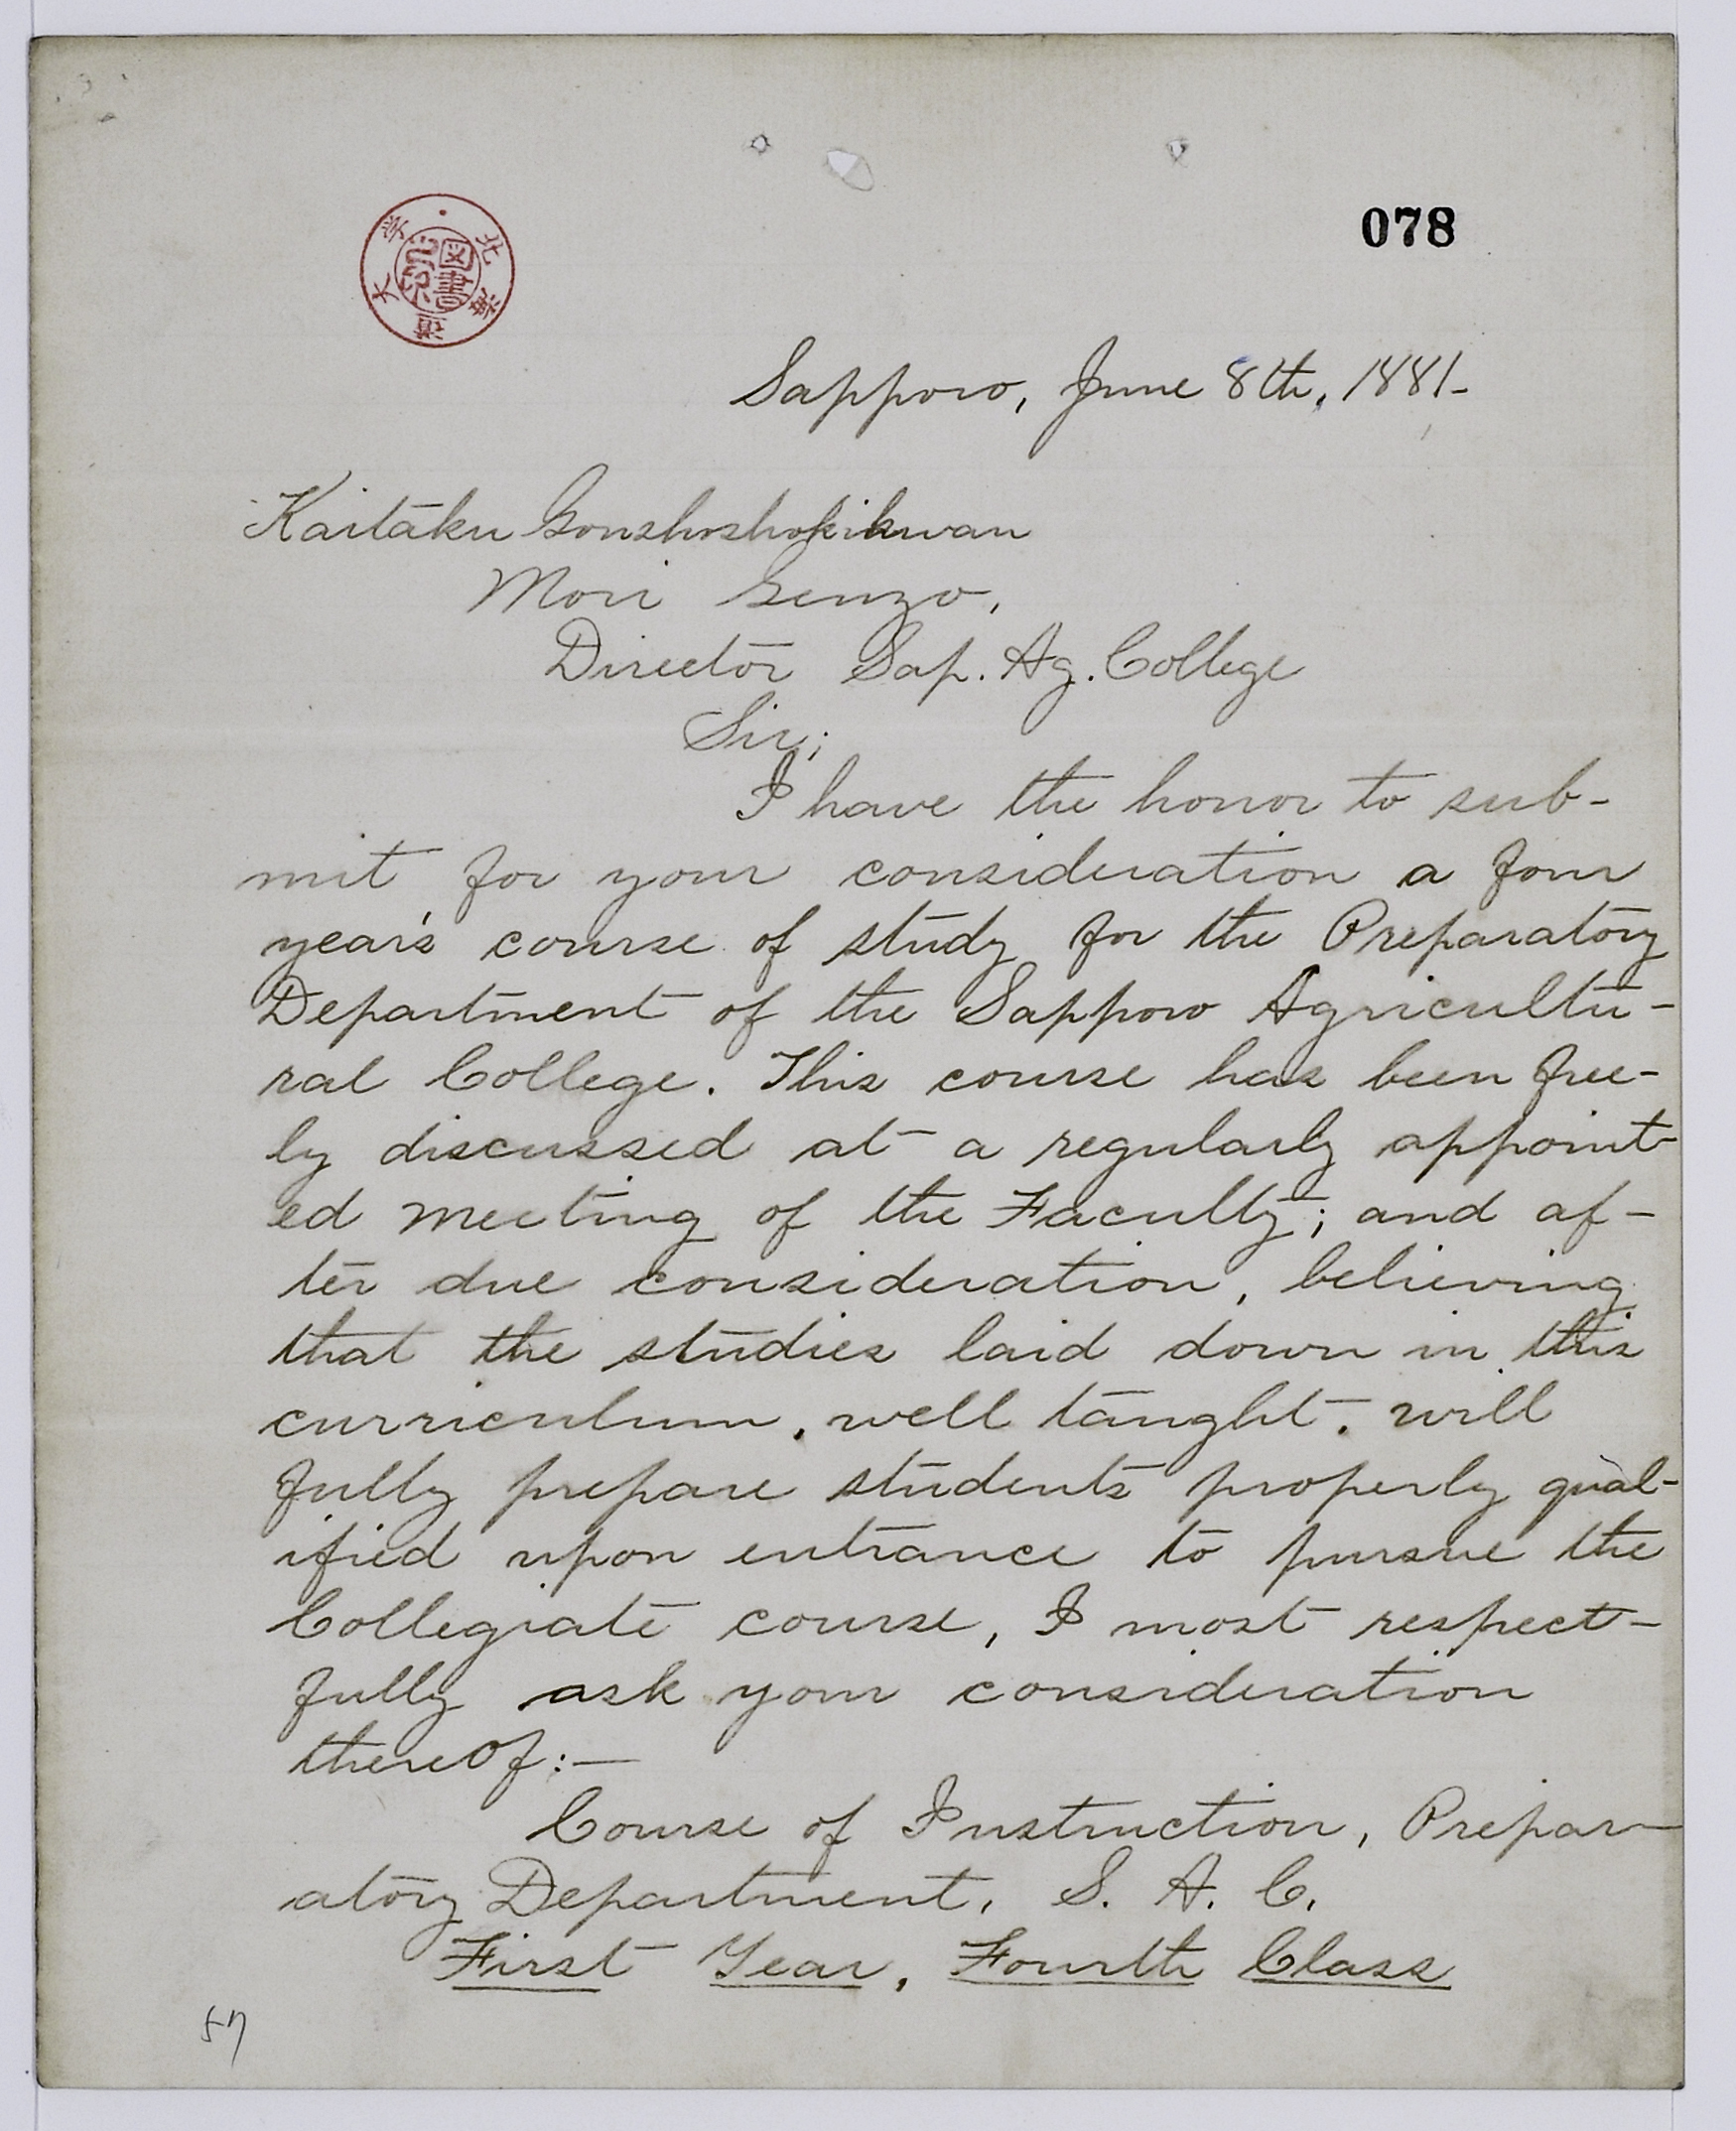 078
北海道大学
図書
Sapporo, June 8th, 1881-
Kaitaku Gonshoshokikwan
Mori Genzo,
Director Sap. Ag. College
Sir;
I have the honor to sub-
mit for your consideration a four
year's course of study for the Preparatory
Department of the Sapporo Agricultu-
ral College. This course has been free-
ly discussed at a regularly appoint-
ed meeting of the Faculty; and af-
ter due consideration, believing
that the studies laid down in this
curriculum, well taught, will
fully prepare students properly qual-
ified upon entrance to pursue the
Collegiate course, I most respect-
fully ask your consideration
thereof:—
Course of Instruction, Prepar-
atory Department, S. A. C.
First Year, Fourth Class
57